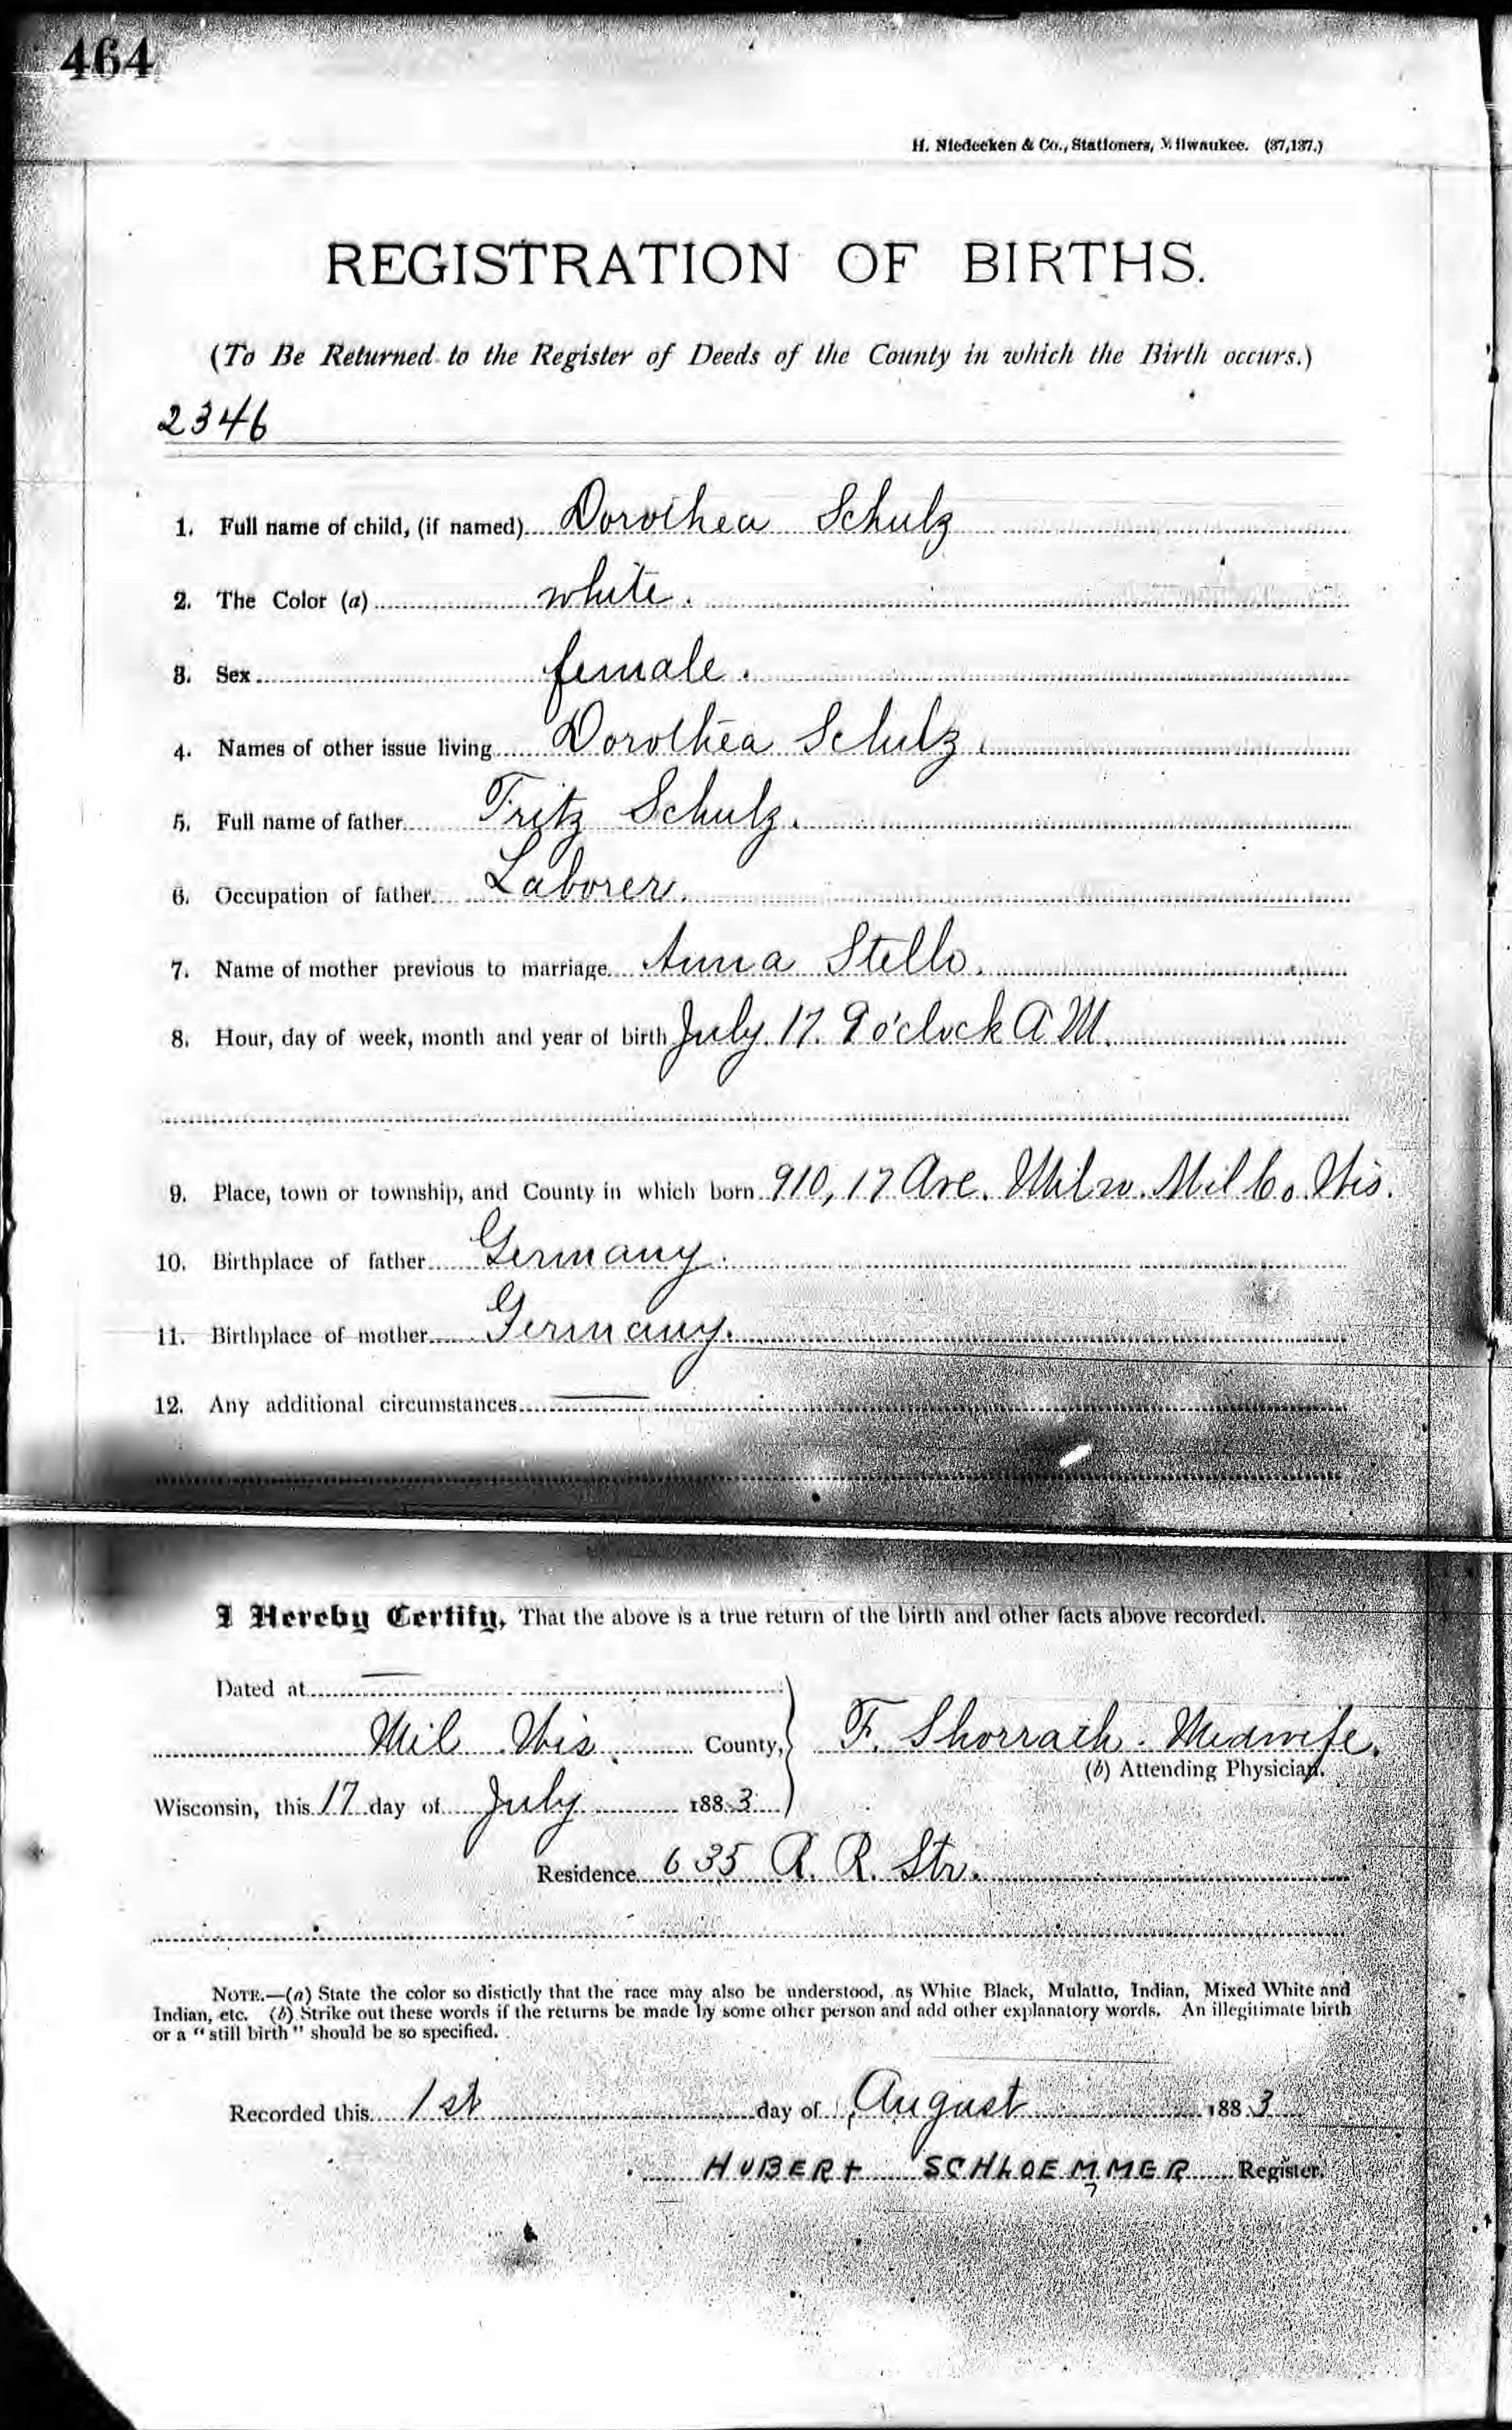 464
H. Niedecken & Co., Stationers, Milwaukee. (37,137.)
REGISTRATION OF BIRTHS.
(To Be Returned to the Register of Deeds of the County in which the Birth occurs.)
2346
1. Full name of child, (if named) Dorothea Schulz
2. The Color (a) white.
3. Sex female.
4. Names of other issue living Dorothea Schulz.
5. Full name of father Fritz Schulz.
6. Occupation of father Laborer.
7. Name of mother previous to marriage Anna Stello.
8. Hour, day of week, month and year of birth July. 17. 9 o'clock A M.
9. Place, town or township, and County in which born 910, 17 Ave. Milw. Mil Co. Wis.
10. Birthplace of father Germany.
11. Birthplace of mother Germany.
12. Any additional circumstances —
I Hereby Certify, That the above is a true return of the birth and other facts above recorded.
Dated at —
Mil Wis. County, F. Shorrach. Midwife.
(b) Attending Physician.
Wisconsin, this 17 day of July 1883
Residence 635 R. R. Str.
NOTE.—(a) State the color so distictly that the race may also be understood, as White Black, Mulatto, Indian, Mixed White and
Indian, etc. (b) Strike out these words if the returns be made by some other person and add other explanatory words. An illegitimate birth
or a "still birth" should be so specified.
Recorded this 1st day of August 1883
HUBERT SCHLOEMMER Register.